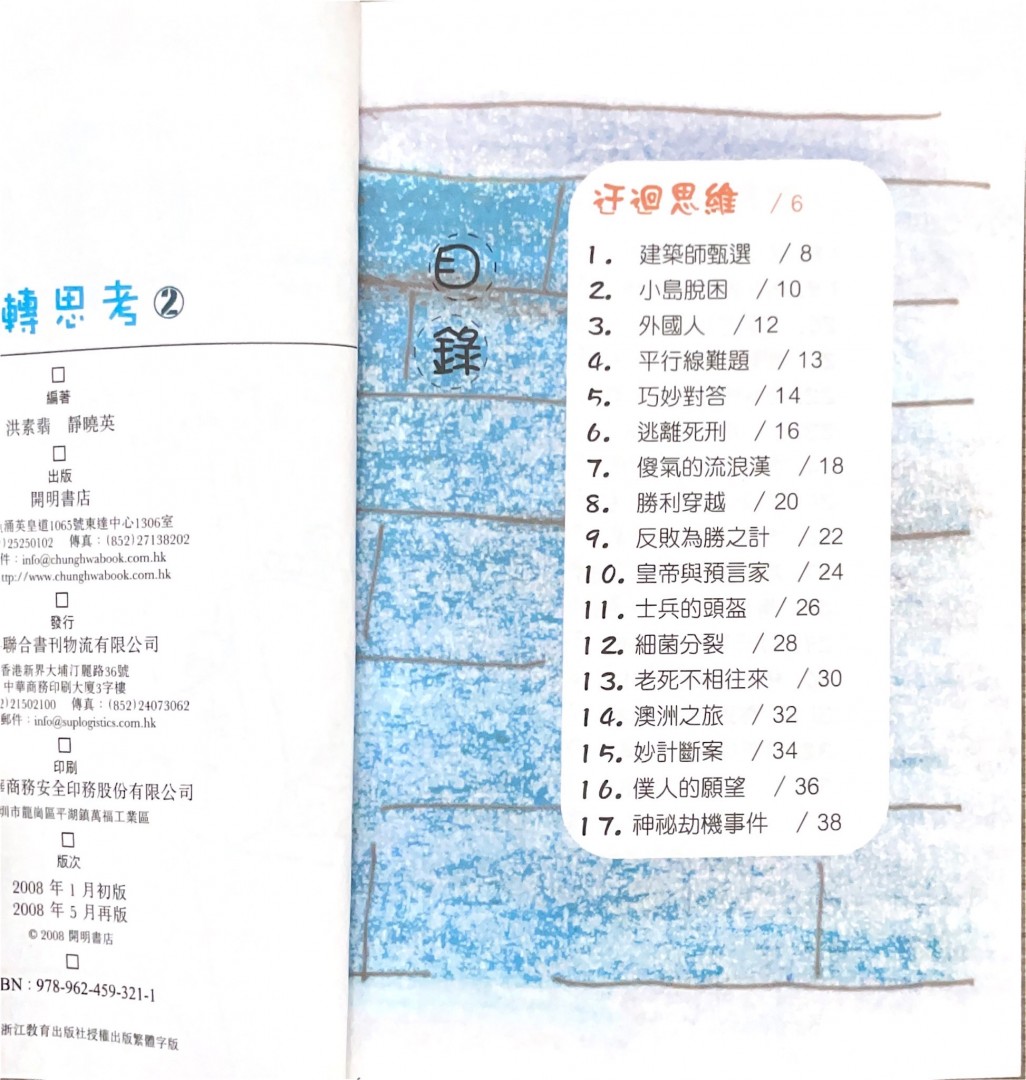 轉思考②
編著
洪素翡　靜曉英
出版
開明書店
涌英皇道1065號東達中心1306室
)25250102　傳真：(852)27138202
件：info@chunghwabook.com.hk
ttp://www.chunghwabook.com.hk
發行
聯合書刊物流有限公司
香港新界大埔汀麗路36號
中華商務印刷大廈3字樓
2)21502100　傳真：(852)24073062
郵件：info@suplogistics.com.hk
印刷
商務安全印務股份有限公司
圳市龍崗區平湖鎮萬福工業區
版次
2008 年 1 月初版
2008 年 5 月再版
© 2008 開明書店
BN：978-962-459-321-1
浙江教育出版社授權出版繁體字版
目錄
迂迴思維 / 6
1. 建築師甄選 / 8
2. 小島脫困 / 10
3. 外國人 / 12
4. 平行線難題 / 13
5. 巧妙對答 / 14
6. 逃離死刑 / 16
7. 傻氣的流浪漢 / 18
8. 勝利穿越 / 20
9. 反敗為勝之計 / 22
10. 皇帝與預言家 / 24
11. 士兵的頭盔 / 26
12. 細菌分裂 / 28
13. 老死不相往來 / 30
14. 澳洲之旅 / 32
15. 妙計斷案 / 34
16. 僕人的願望 / 36
17. 神祕劫機事件 / 38